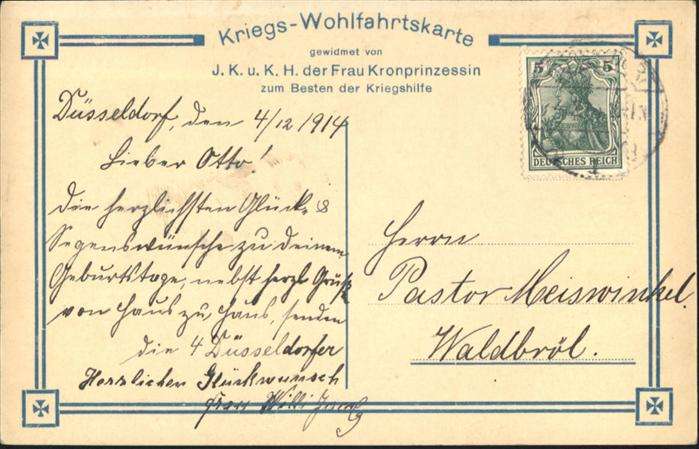 Kriegs-Wohlfahrtskarte
gewidmet von
J. K. u. K. H. der Frau Kronprinzessin
zum Besten der Kriegshilfe
5 5
DEUTSCHES REICH
Düsseldorf, den 4/12 1914
Lieber Otto!
Die herzlichsten Glück- &
Segenswünsche zu deinem
Geburtstage, nebst herzl. Grüße
von Haus zu Haus, senden
die 4 Düsseldorfer
Herzlichen Glückwunsch
Frau Willi
Herrn
Pastor Meiswinkel.
Waldbröl.